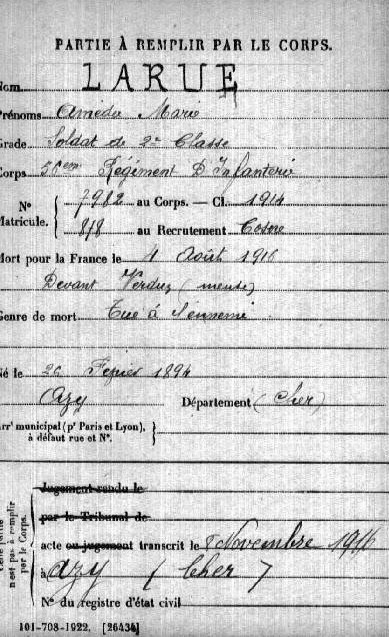 PARTIE À REMPLIR PAR LE CORPS.
Nom LARUE
Prénoms Amédée Marie
Grade Soldat de 2e Classe
Corps 56em Régiment D'Infanterie
N° 7982 au Corps. — Cl. 1914
Matricule. 818 au Recrutement Cosne
Mort pour la France le 1 Août 1916
Devant Verdun (meuse)
Genre de mort Tué à l'ennemi
Né le 26 Février 1894
Azy Département (Cher)
Arr' municipal (p' Paris et Lyon),
à défaut rue et N°.
Jugement rendu le
par le Tribunal de
acte ou jugement transcrit le 8 Novembre 1916
à Azy (Cher)
N° du registre d'état civil
n'est pas à remplir
par le Corps.
101-708-1922. [26434]